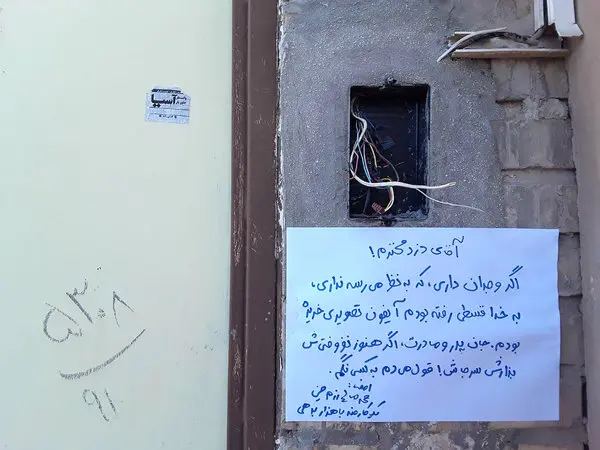 آسیا
۵۳۰۸
۹۱
آقای دزد محترم!
اگر وجدان داری، که به نظر می رسه نداری،
به خدا قسطی رفته بودم آیفون تصویری خریده
بودم. جان پدر و مادرت، اگر هنوز نفروختی ش
بذارش سرجاش! قول می دم به کسی نگم.
امضا:
کارمند با هزار بدهی